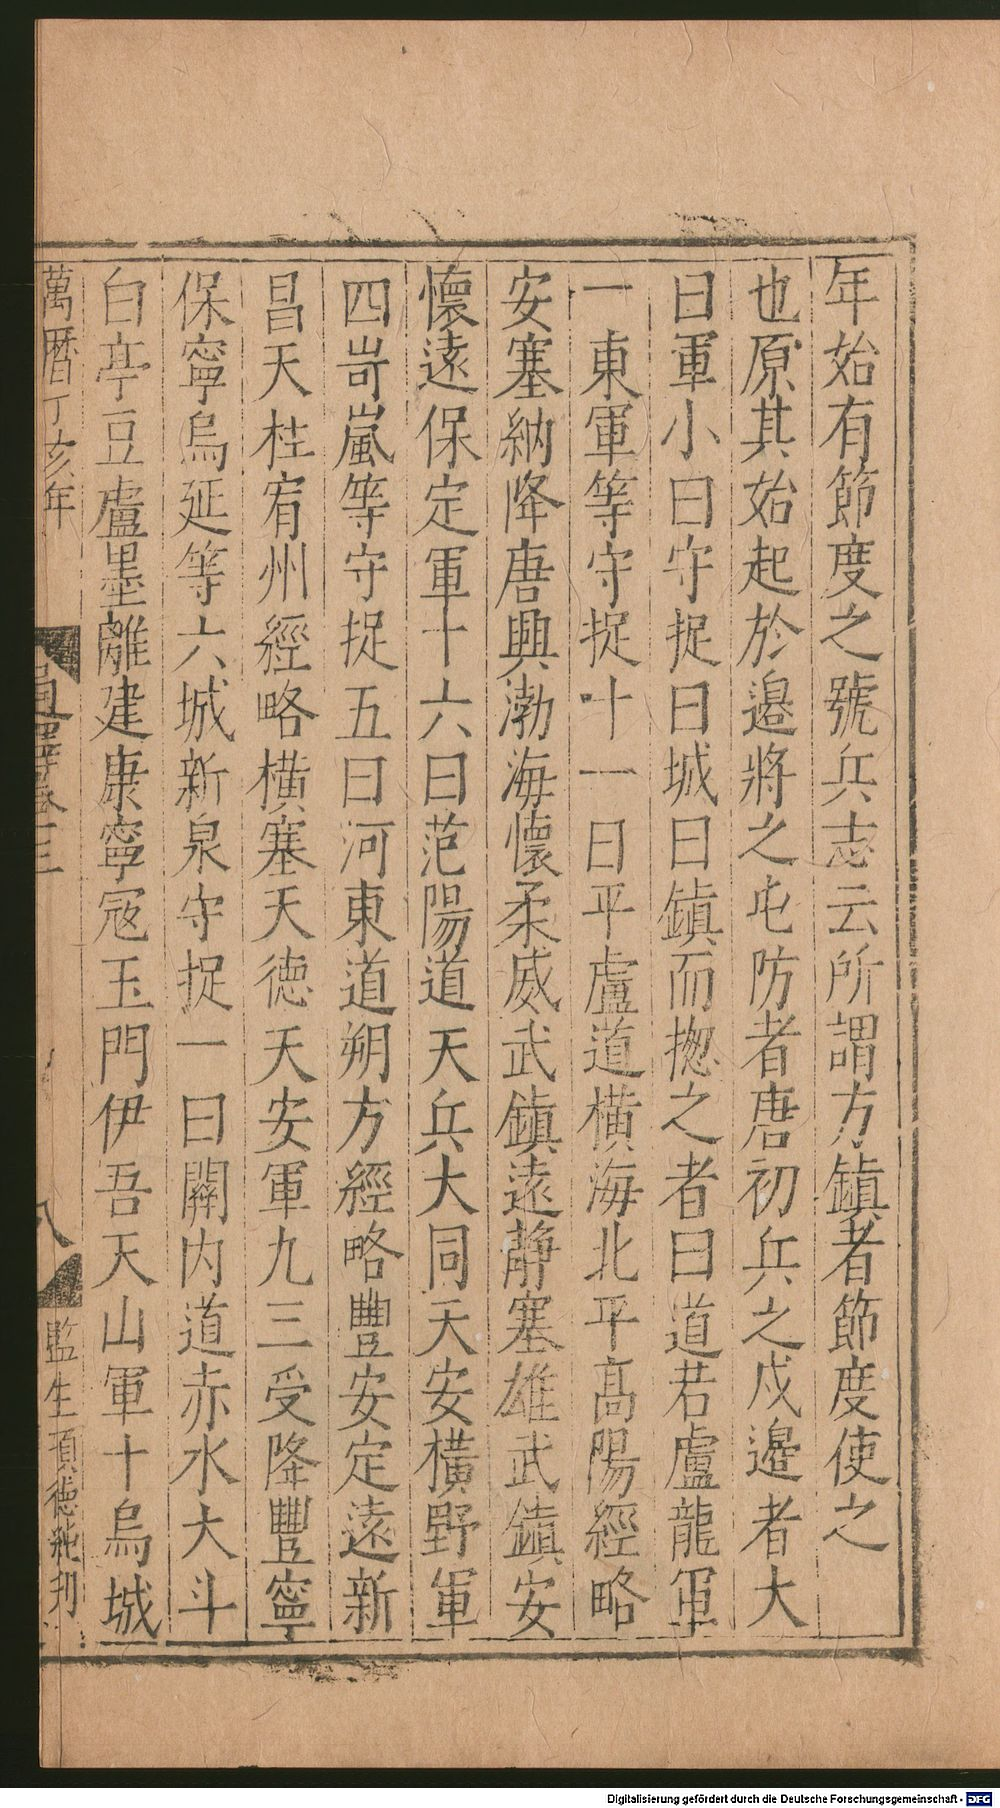 年始有節度之號兵志云所謂方鎮者節度使之
也原其始起於邉將之屯防者唐初兵之戍邉者大
曰軍小曰守捉曰城曰鎮而揔之者曰道若盧龍軍
一東軍等守捉十一曰平盧道橫海北平高陽經略
安塞納降唐興渤海懷柔威武鎮遠靜塞雄武鎮安
懷遠保定軍十六曰范陽道天兵大同天安橫野軍
四岢嵐等守捉五曰河東道朔方經略豐安定遠新
昌天柱宥州經略橫塞天德天安軍九三受降豐寧
保寧烏延等六城新泉守捉一曰關内道赤水大斗
白亭豆盧墨離建康寧寇玉門伊吾天山軍十烏城
萬曆丁亥年
卷三
八
監生項德純刋
Digitalisierung gefördert durch die Deutsche Forschungsgemeinschaft - DFG